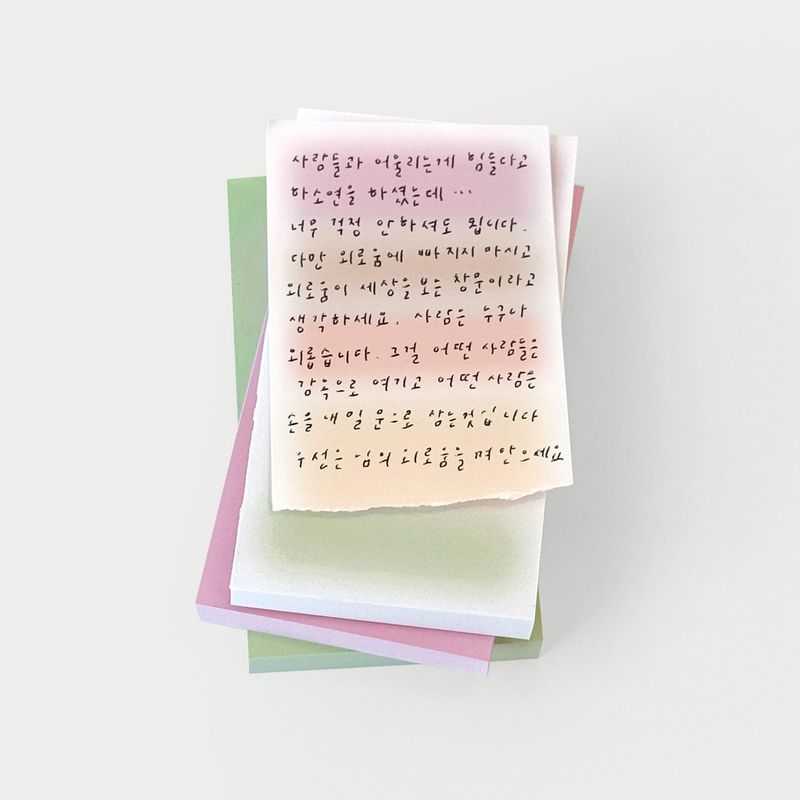 사람들과 어울리는게 힘들다고
하소연을 하셨는데 ...
너무 걱정 안하셔도 됩니다.
다만 외로움에 빠지지 마시고
외로움이 세상을 보는 창문이라고
생각하세요. 사람은 누구나
외롭습니다. 그걸 어떤 사람들은
감옥으로 여기고 어떤 사람은
손을 내밀 문으로 삼는것입니다
우선은 님의 외로움을 껴안으세요